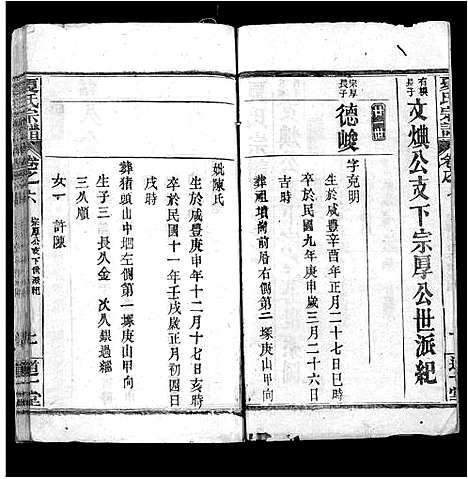 夏氏宗譜 卷之六
有模長子 文煥公支下宗厚公世派紀
廿一世
宗厚長子 德峻 字克明
生於咸豐辛酉年正月二十七日巳時
卒於民國九年庚申歲三月二十六日
吉時
葬祖墳嵴前層右側第二塚庚山甲向
妣陳氏
生於咸豐庚申年十二月十七日亥時
卒於民國十一年壬戌歲正月初四日
戌時
葬豬頭山中垇左側第一塚庚山甲向
生子三 長久金 次久銀過繼
三久順
女一 許陳
夏氏宗譜 卷之六 宗厚公支下世派紀 上 道一堂